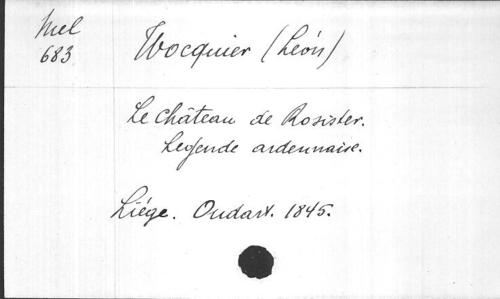 Mel
683
Wocquier (Léon)
Le Château de Rosister.
Legende ardennaise.
Liége. Oudart. 1845.